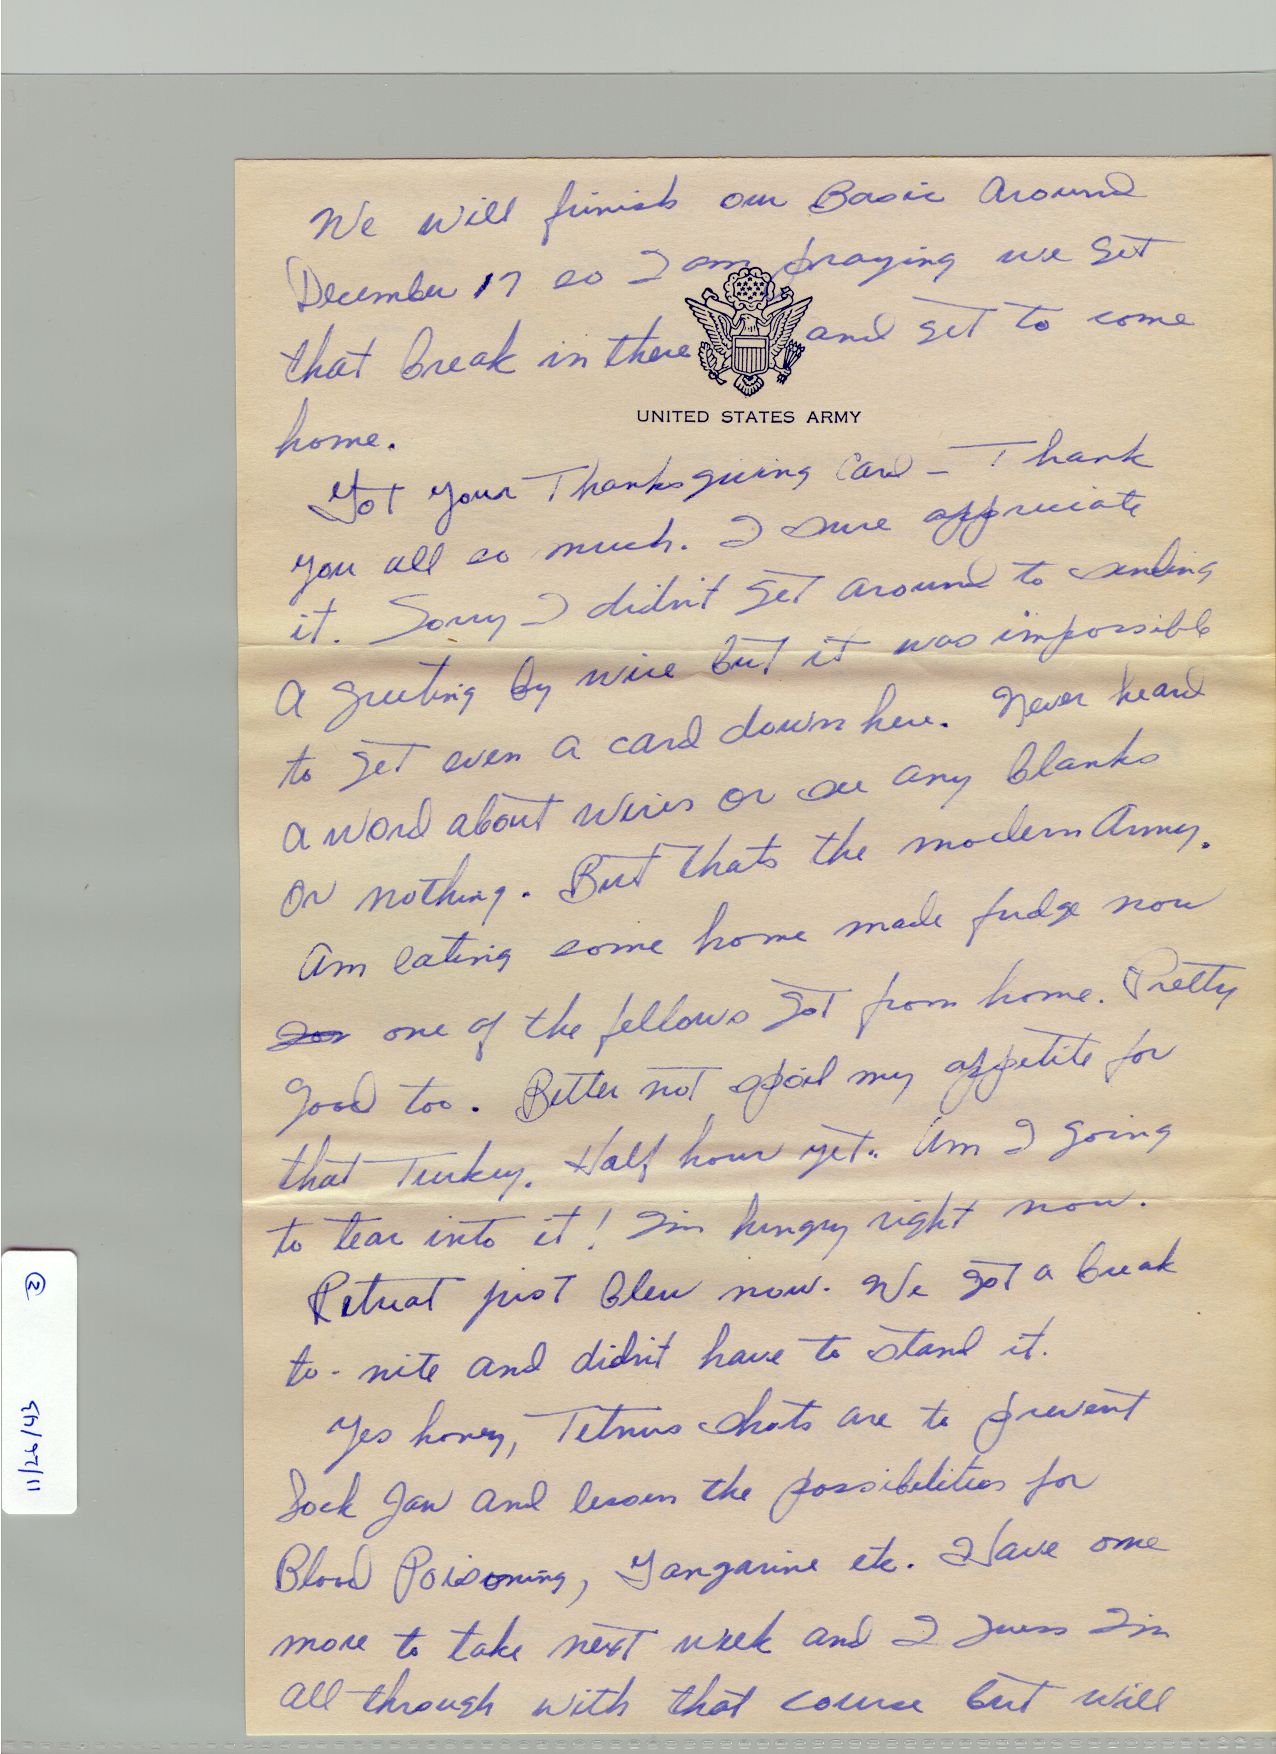 We will finish our Basic around
December 17 so I am praying we get
that break in there and get to come
home.
UNITED STATES ARMY
Got your Thanksgiving Card - Thank
you all so much. I sure appreciate
it. Sorry I didn't get around to sending
a greeting by wire but it was impossible
to get even a card down here. Never heard
a word about wires or see any blanks
or nothing. But thats the modern Army.
Am eating some home made fudge now
one of the fellows got from home. Pretty
good too. Better not spoil my appetite for
that Turkey. Half hour yet. Am I going
to tear into it! I'm hungry right now.
Retreat just blew now. We got a break
to-nite and didn't have to stand it.
Yes honey, Tetnus shots are to prevent
Lock Jaw and lessen the possibilities for
Blood Poisoning, Gangarine etc. Have one
more to take next week and I guess I'm
all through with that course but will
②
11/26/43